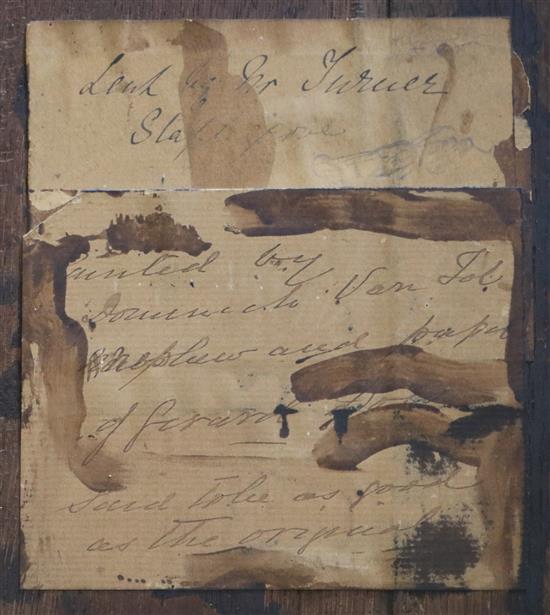 Lent by Mr Turner
ainted by
Dominick Van Tol
nephew and pupi
of Gerard
said to be as good
as the original